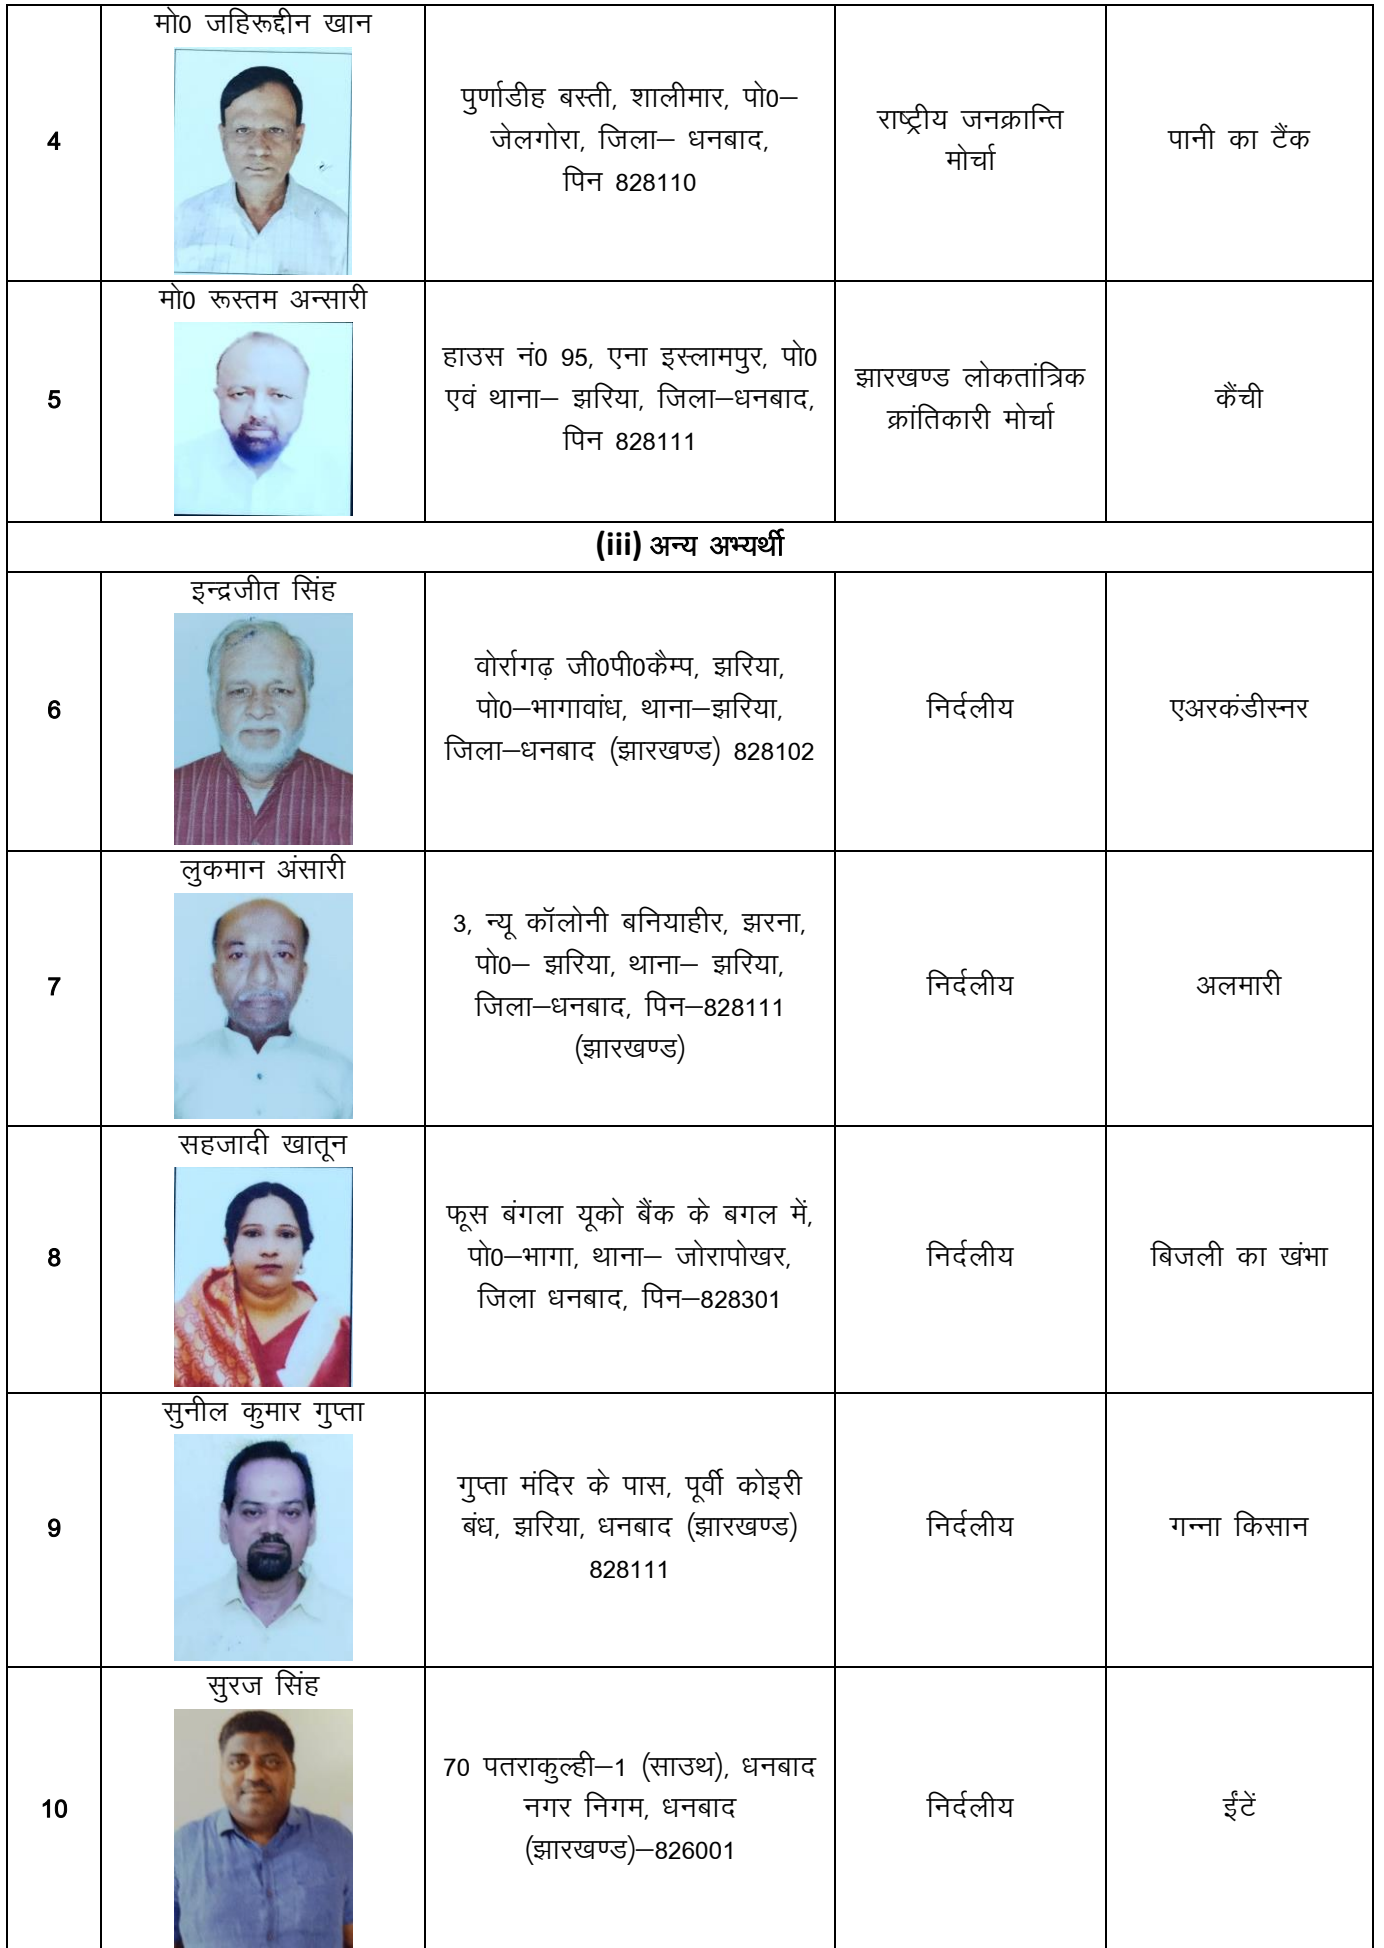 मो0 जहिरूद्दीन खान
4
पुर्णाडीह बस्ती, शालीमार, पो0–
जेलगोरा, जिला– धनबाद,
पिन 828110
राष्ट्रीय जनक्रान्ति
मोर्चा
पानी का टैंक
मो0 रूस्तम अन्सारी
5
हाउस नं0 95, एना इस्लामपुर, पो0
एवं थाना– झरिया, जिला–धनबाद,
पिन 828111
झारखण्ड लोकतांत्रिक
क्रांतिकारी मोर्चा
कैंची
(iii) अन्य अभ्यर्थी
इन्द्रजीत सिंह
6
वोर्रागढ़ जी0पी0कैम्प, झरिया,
पो0–भागावांध, थाना–झरिया,
जिला–धनबाद (झारखण्ड) 828102
निर्दलीय
एअरकंडीस्नर
लुकमान अंसारी
7
3, न्यू कॉलोनी बनियाहीर, झरना,
पो0– झरिया, थाना– झरिया,
जिला–धनबाद, पिन–828111
(झारखण्ड)
निर्दलीय
अलमारी
सहजादी खातून
8
फूस बंगला यूको बैंक के बगल में,
पो0–भागा, थाना– जोरापोखर,
जिला धनबाद, पिन–828301
निर्दलीय
बिजली का खंभा
सुनील कुमार गुप्ता
9
गुप्ता मंदिर के पास, पूर्वी कोइरी
बंध, झरिया, धनबाद (झारखण्ड)
828111
निर्दलीय
गन्ना किसान
सुरज सिंह
10
70 पतराकुल्ही–1 (साउथ), धनबाद
नगर निगम, धनबाद
(झारखण्ड)–826001
निर्दलीय
ईंटें